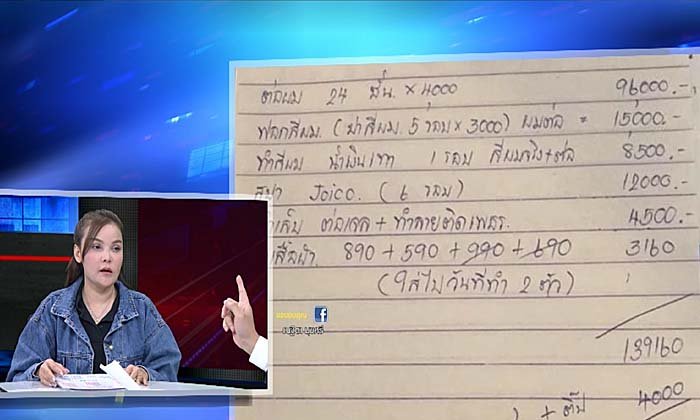 ต่อผม 24 ชิ้น. × 4000 96000.-
ฟอกสีผม. (ฆ่าสีผม. 5 รอบ × 3000) ผมต่อ = 15000.-
ทำสีผม น้ำเงินเทา 1 รอบ สีผมจริง+ต่อ 8500.-
สปา Joico. (6 รอบ) 12000.-
ต่อเล็บ + ทำลายติดเพชร. 4500.-
890 + 590 + 990 + 690 3160
(ใส่ไปวันที่ทำ 2 ตัว)
ขอบคุณ
139160
+ ทิป 4000